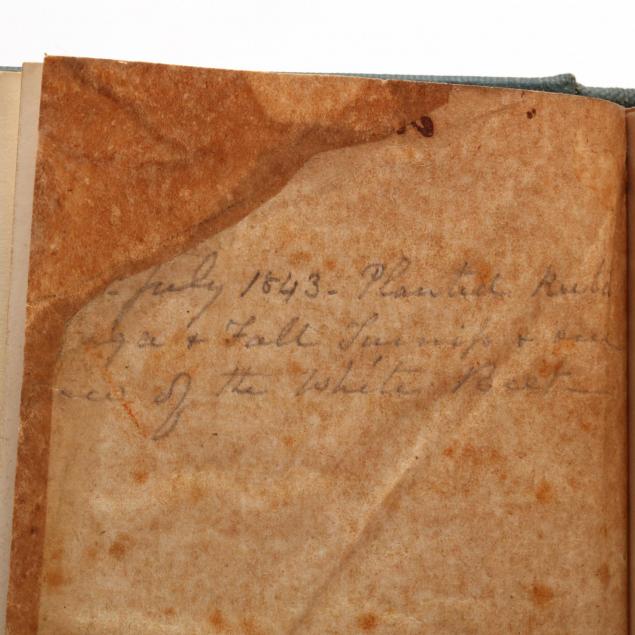 - July 1843 - Planted Ruta
aga & Fall Turnip & one
row of the White Beet